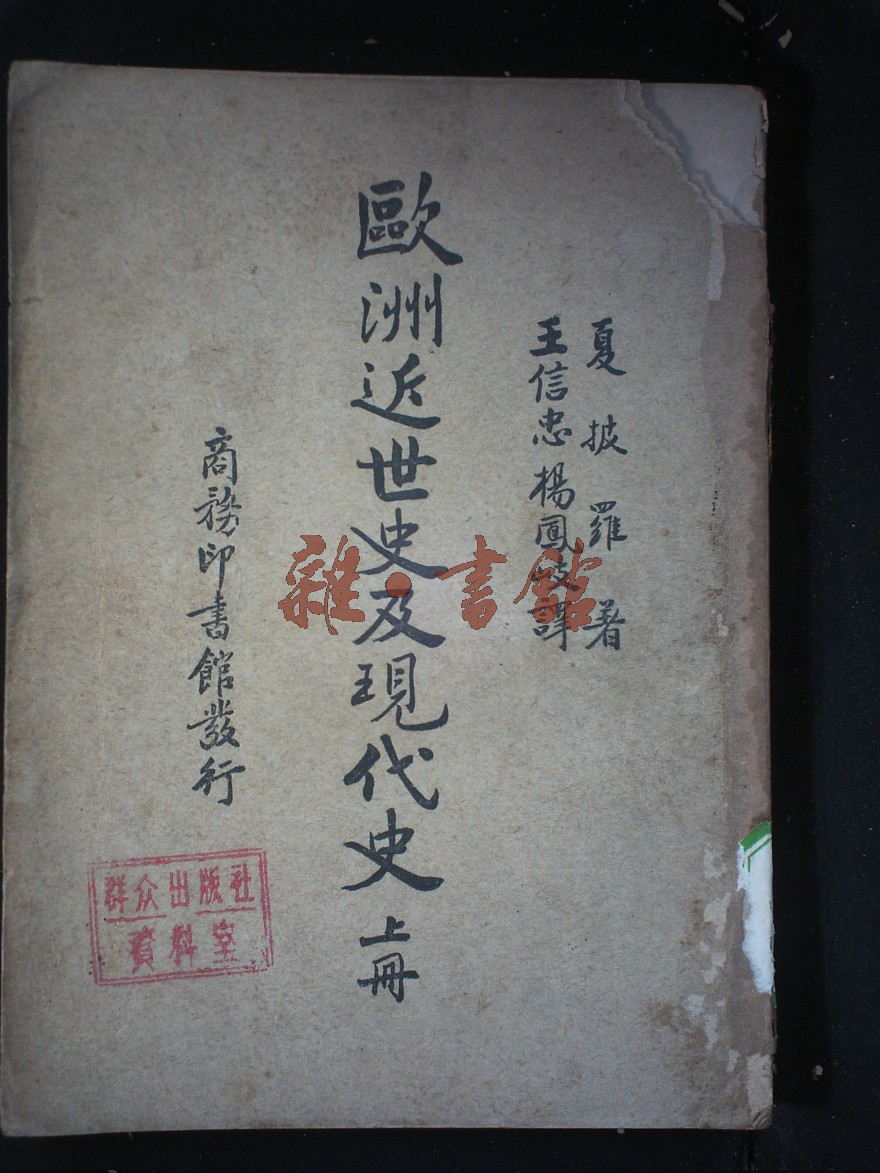 夏披羅著
王信忠楊鳳岐譯
歐洲近世史及現代史 上冊
商務印書館發行
群众出版社
資料室
雜·書館